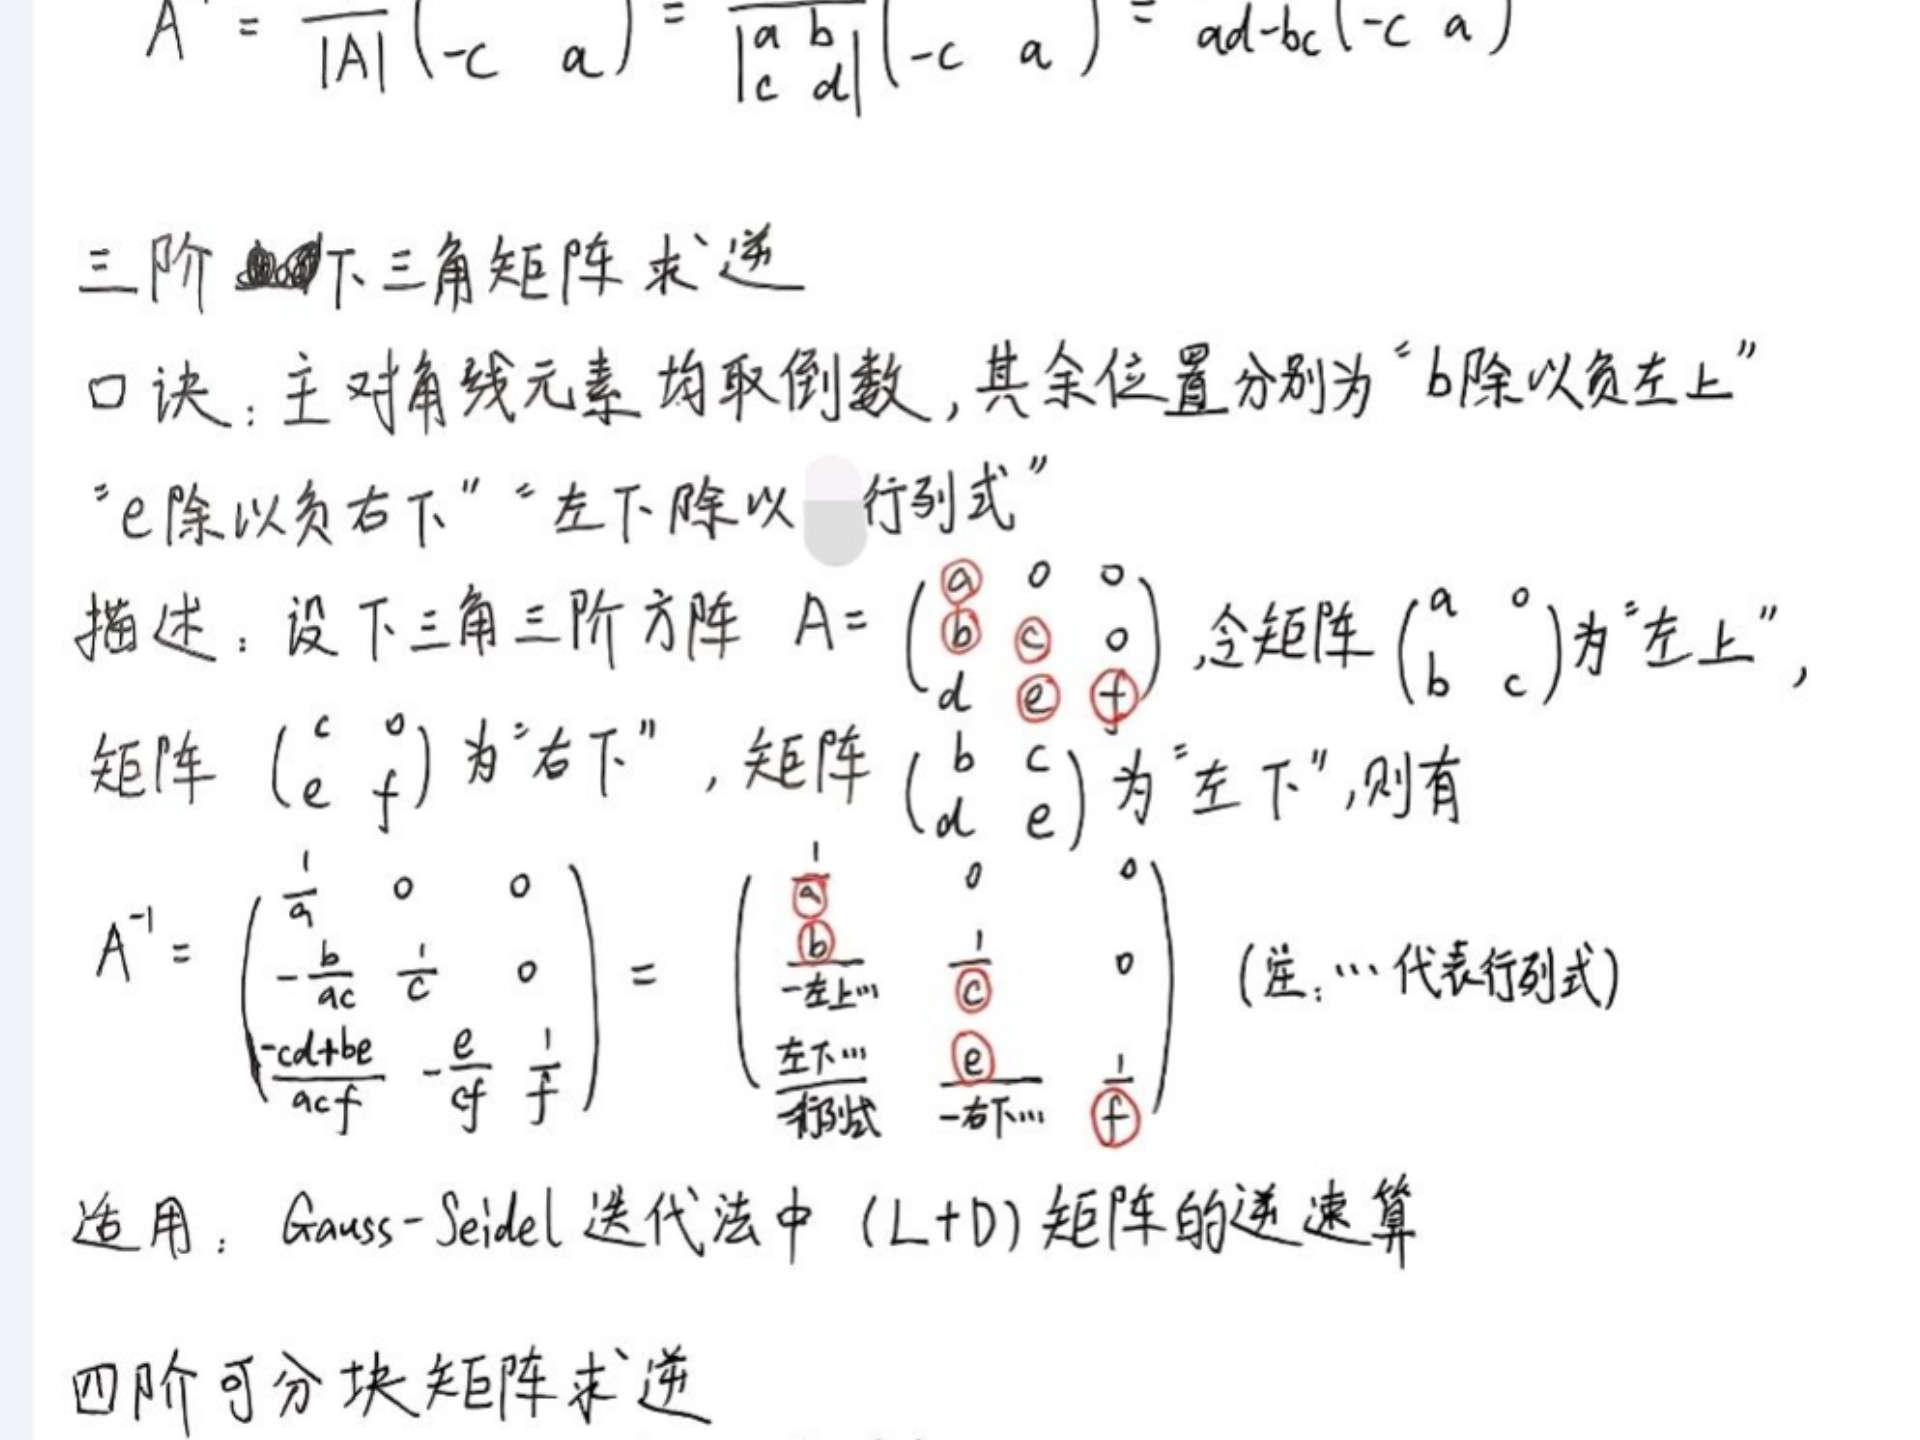 A⁻ = ─/|A| (-c a) = ─/|a b c d| (-c a) = ad-bc (-c a)
三阶 下三角矩阵求逆
口诀：主对角线元素均取倒数，其余位置分别为“b除以负左上”
“e除以负右下”“左下除以 行列式”
描述：设下三角三阶方阵 A= (a 0 0; b c 0; d e f)，令矩阵 (a 0; b c) 为“左上”，
矩阵 (c 0; e f) 为“右下”，矩阵 (b c; d e) 为“左下”，则有
A⁻¹ = (1/a 0 0; -b/ac 1/c 0; -cd+be/acf -e/cf 1/f) = (1/a 0 0; b/-左上… 1/c 0; 左下…/行列式 e/-右下… 1/f) (注：…代表行列式)
适用：Gauss-Seidel 迭代法中 (L+D) 矩阵的逆速算
四阶可分块矩阵求逆